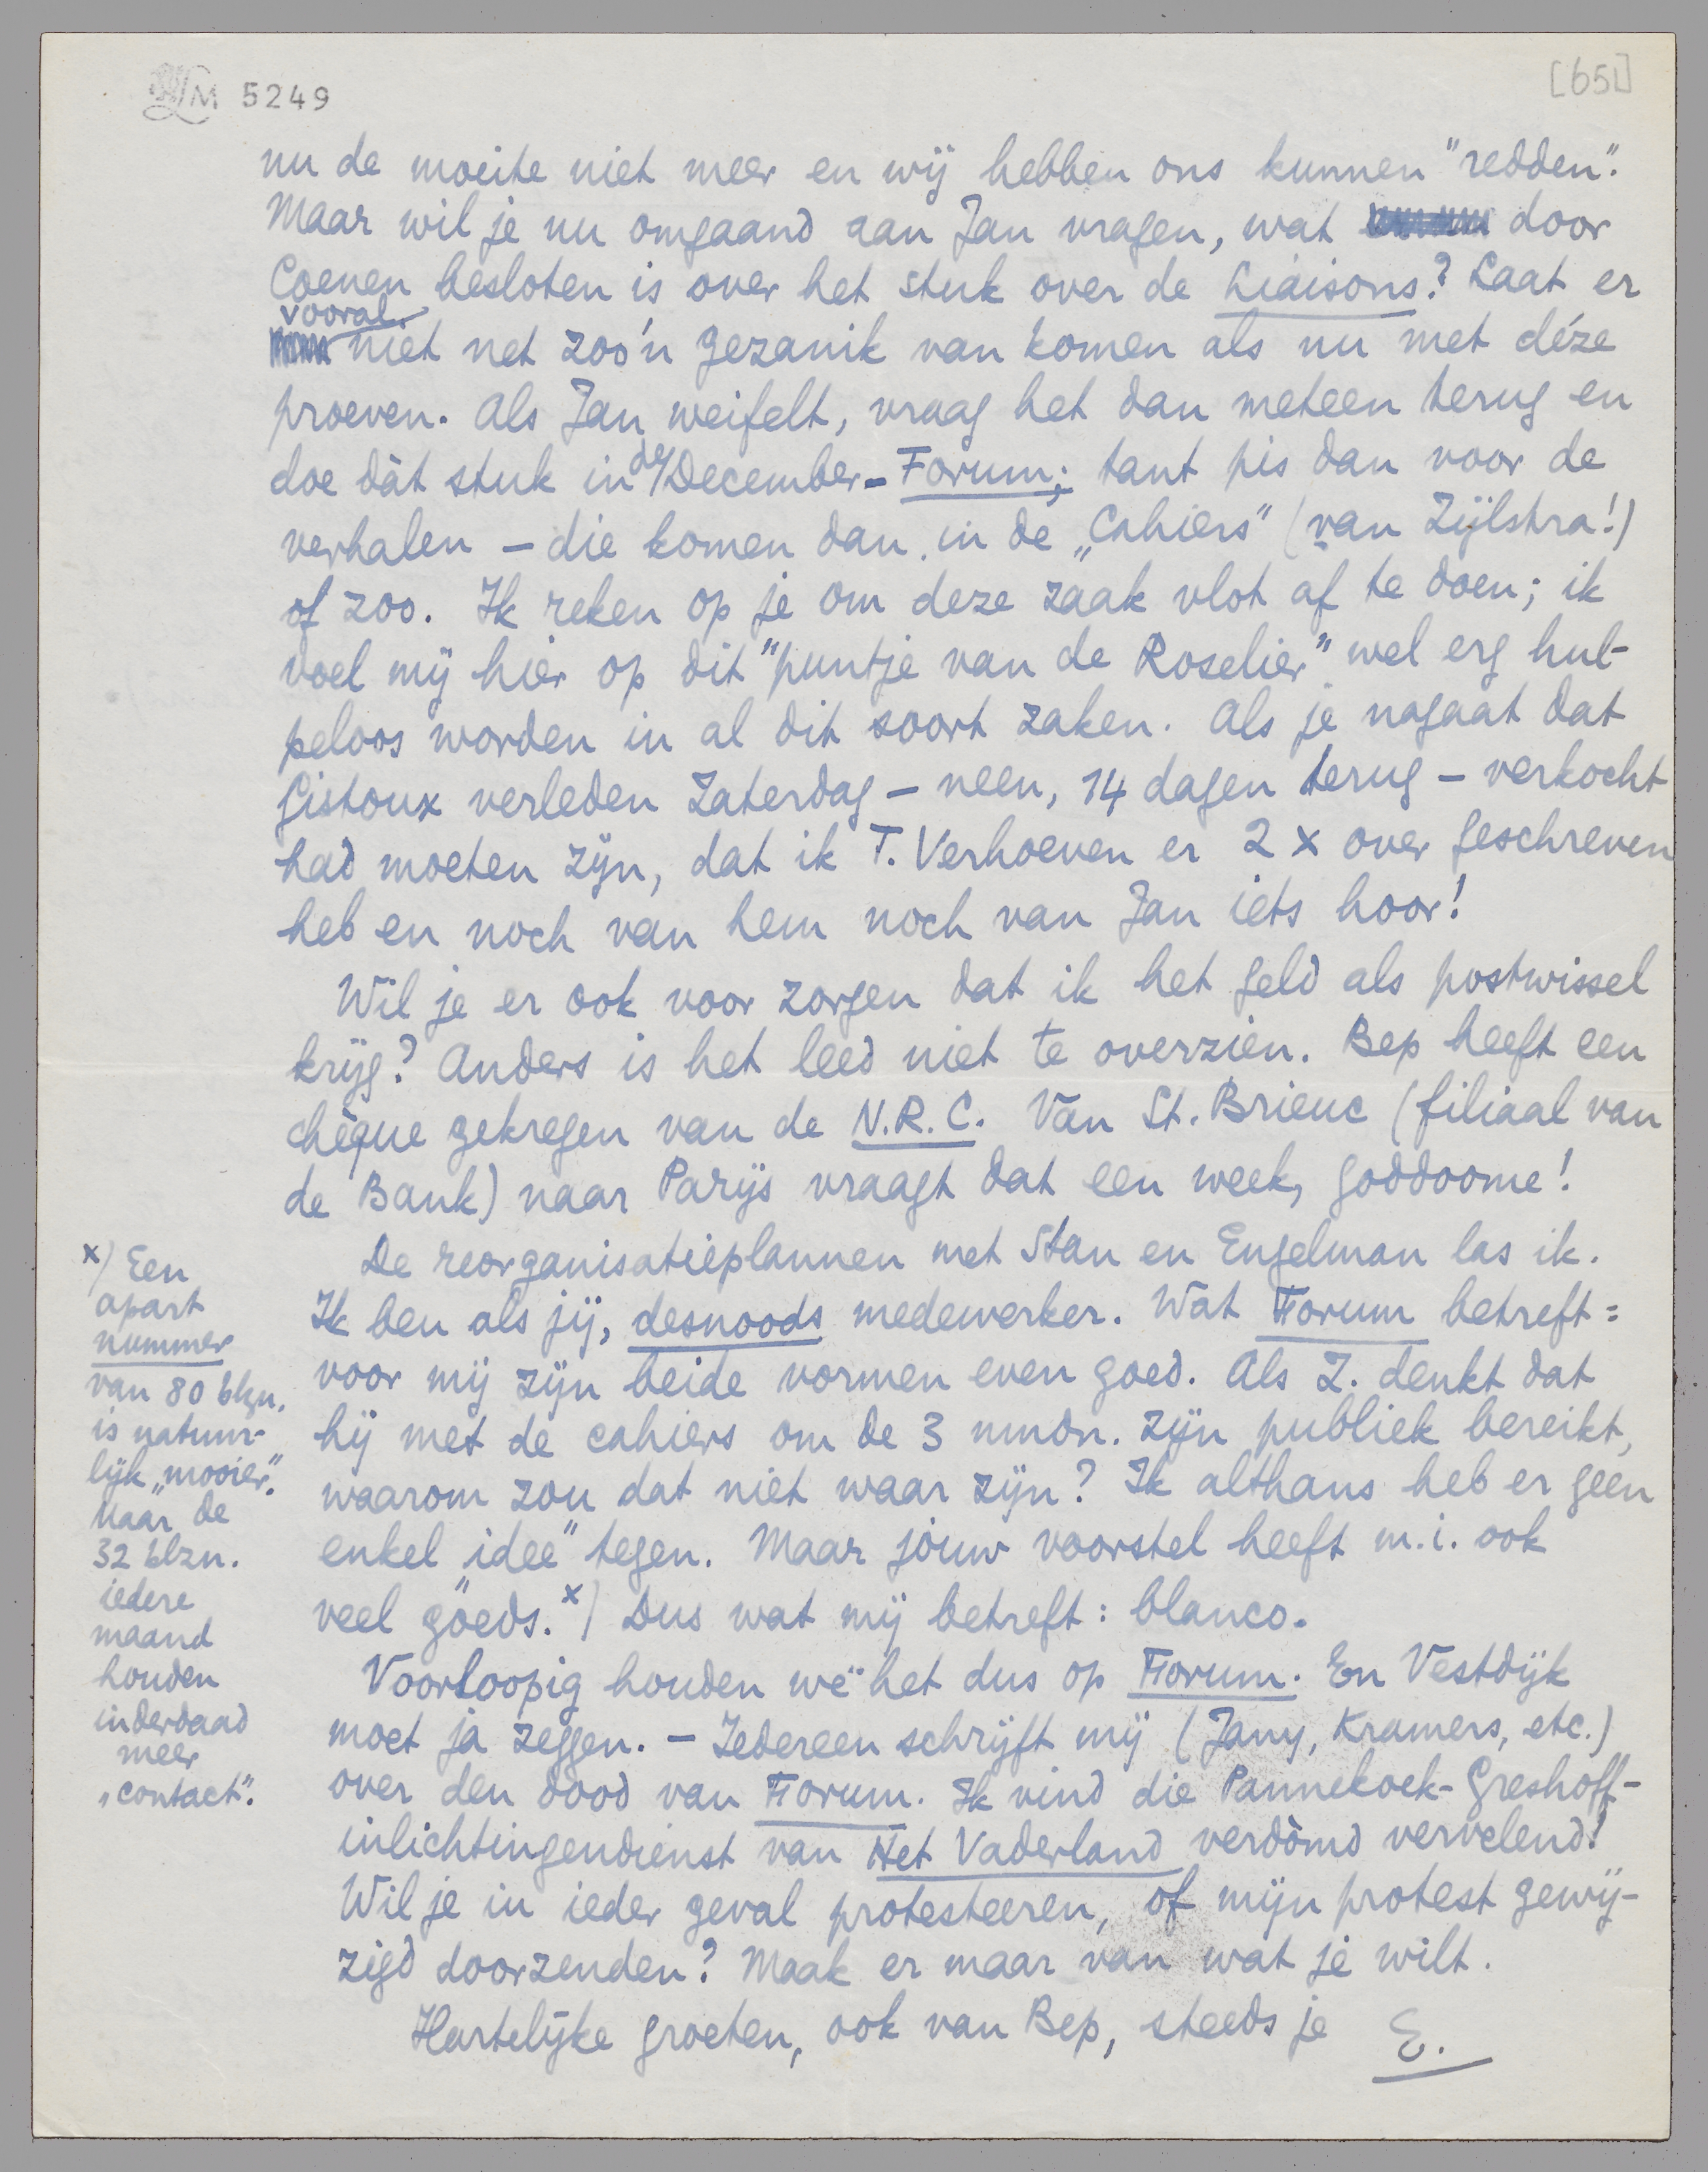 LM 5249
[651]
nu de moeite niet meer en wij hebben ons kunnen "redden".
Maar wil je nu omgaand aan Jan vragen, wat door
Coenen besloten is over het stuk over de Liaisons? Laat er
vooral
niet net zoo'n gezanik van komen als nu met déze
proeven. Als Jan weifelt, vraag het dan meteen terug en
doe dàt stuk in de December-Forum; tant pis dan voor de
verhalen – die komen dan in de „Cahiers" (van Zijlstra!)
of zoo. Ik reken op je om deze zaak vlot af te doen; ik
voel mij hier op dit "puntje van de Roselier" wel erg hul-
peloos worden in al dit soort zaken. Als je nagaat dat
Gistoux verleden Zaterdag – neen, 14 dagen terug – verkocht
had moeten zijn, dat ik T. Verhoeven er 2 x over geschreven
heb en noch van hem noch van Jan iets hoor!
Wil je er ook voor zorgen dat ik het geld als postwissel
krijg? Anders is het leed niet te overzien. Bep heeft een
chèque gekregen van de N.R.C. Van St. Brieuc (filiaal van
de Bank) naar Parijs vraagt dat een week, goddoome!
De reorganisatieplannen met Stan en Engelman las ik.
Ik ben als jij, desnoods medewerker. Wat Forum betreft:
voor mij zijn beide vormen even goed. Als Z. denkt dat
hij met de cahiers om de 3 mndn. zijn publiek bereikt,
waarom zou dat niet waar zijn? Ik althans heb er geen
enkel „idee" tegen. Maar jouw voorstel heeft m.i. ook
veel goeds. x) Dus wat mij betreft: blanco.
Voorloopig houden we het dus op Forum. En Vestdijk
moet ja zeggen. – Iedereen schrijft mij (Jany, Kramers, etc.)
over den dood van Forum. Ik vind die Pannekoek-Greshoff-
inlichtingendienst van Het Vaderland verdòmd vervelend!
Wil je in ieder geval protesteeren, of mijn protest gewij-
zigd doorzenden? Maak er maar van wat je wilt.
Hartelijke groeten, ook van Bep, steeds je E.
x) Een
apart
nummer
van 80 blzn.
is natuur-
lijk „mooier".
Maar de
32 blzn.
iedere
maand
houden
inderdaad
meer
„contact".